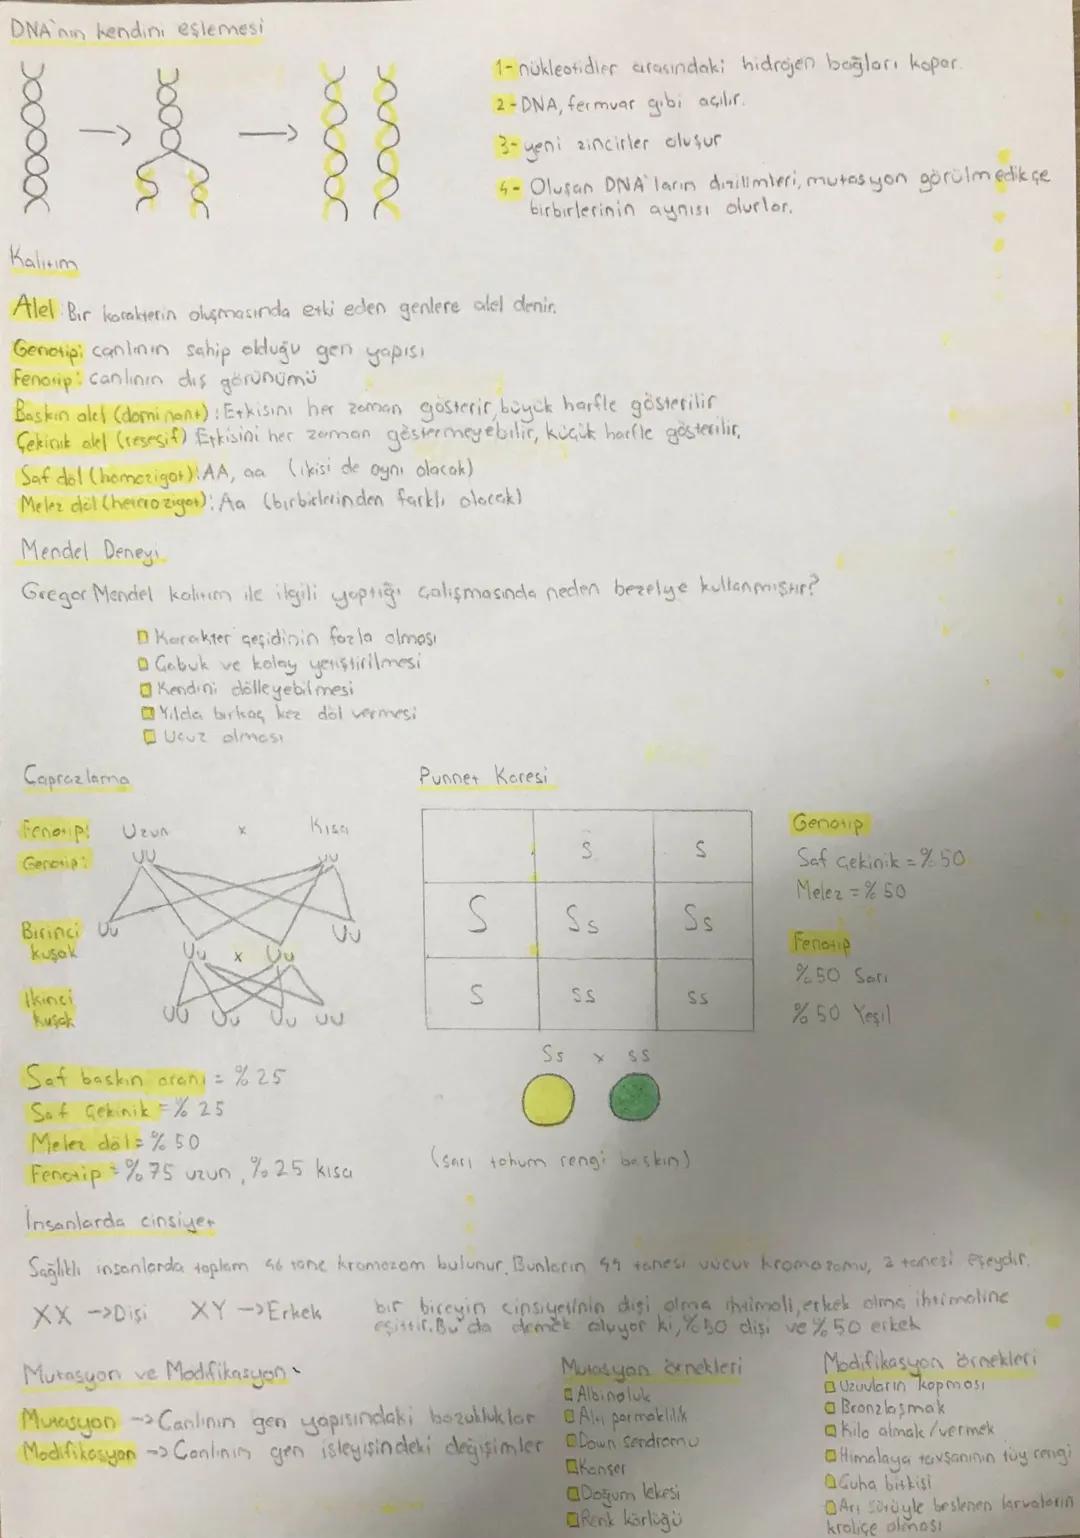 DNA'nın kendini eşlemesi
1- nükleotidler arasındaki hidrojen bağları kopar.
2- DNA, fermuar gibi açılır.
3- yeni zincirler oluşur
4- Oluşan DNA'ların dizilimleri, mutasyon görülmedikçe
birbirlerinin aynısı olurlar.
Kalıtım
Alel: Bir karakterin oluşmasında etki eden genlere alel denir.
Genotip: canlının sahip olduğu gen yapısı
Fenotip: canlının dış görünümü
Baskın alel (dominant): Etkisini her zaman gösterir, büyük harfle gösterilir
Çekinik alel (resesif) Etkisini her zaman göstermeyebilir, küçük harfle gösterilir.
Saf döl (homozigot): AA, aa (ikisi de aynı olacak)
Melez döl (heterozigot): Aa (birbirlerinden farklı olacak)
Mendel Deneyi
Gregor Mendel kalıtım ile ilgili yaptığı çalışmasında neden bezelye kullanmıştır?
Karakter çeşidinin fazla olması
Çabuk ve kolay yetiştirilmesi
Kendini dölleyebilmesi
Yılda birkaç kez döl vermesi
Ucuz olması
Çaprazlama
Fenotip: Uzun x Kısa
Genotip: UU uu
Birinci kuşak
Uu Uu x Uu Uu
İkinci kuşak
UU Uu Uu uu
Saf baskın oranı = %25
Saf Çekinik = %25
Melez döl = %50
Fenotip = %75 uzun, %25 kısa
Punnet Karesi
s s
S Ss Ss
s ss ss
Ss x ss
(sarı tohum rengi baskın)
Genotip
Saf çekinik = %50
Melez = %50
Fenotip
%50 Sarı
%50 Yeşil
İnsanlarda cinsiyet
Sağlıklı insanlarda toplam 46 tane kromozom bulunur. Bunların 44 tanesi vücut kromozomu, 2 tanesi eşeydir.
XX -> Dişi XY -> Erkek
bir bireyin cinsiyetinin dişi olma ihtimali, erkek olma ihtimaline
eşittir. Bu da demek oluyor ki, %50 dişi ve %50 erkek
Mutasyon ve Modifikasyon
Mutasyon -> Canlının gen yapısındaki bozukluklar
Modifikasyon -> Canlının gen işleyişindeki değişimler
Mutasyon örnekleri
Albinoluk
Altı parmaklılık
Down sendromu
Kanser
Doğum lekesi
Renk körlüğü
Modifikasyon örnekleri
Uzuvların kopması
Bronzlaşmak
Kilo almak/vermek
Himalaya tavşanının tüy rengi
Çuha bitkisi
Arı sütüyle beslenen larvaların
kraliçe olması